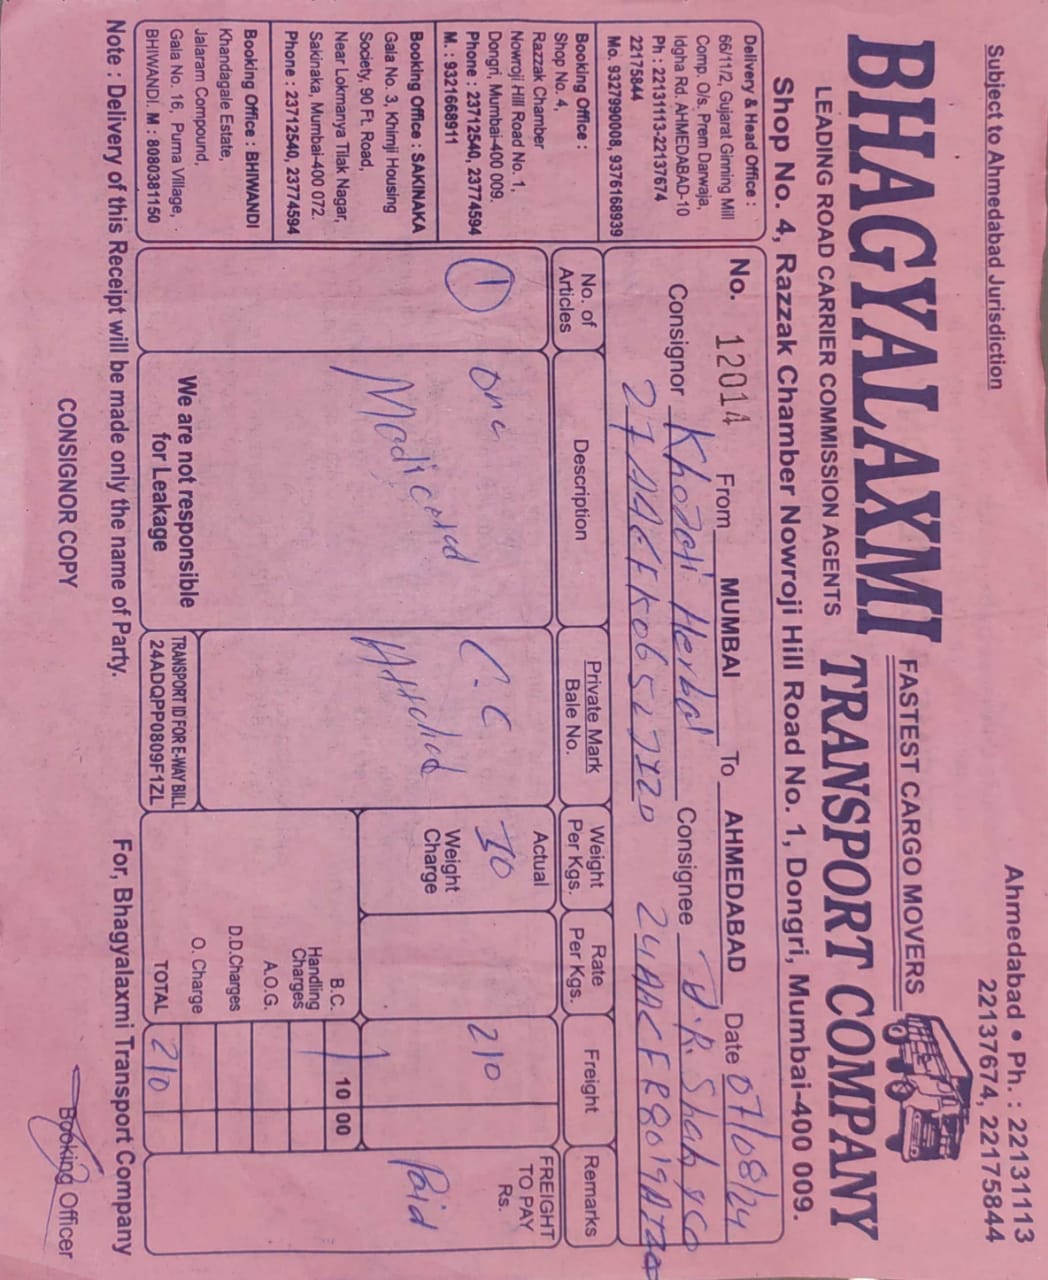 Subject to Ahmedabad Jurisdiction
Ahmedabad • Ph. : 22131113
22137674, 22175844
FASTEST CARGO MOVERS
BHAGYALAXMI TRANSPORT COMPANY
LEADING ROAD CARRIER COMMISSION AGENTS
Shop No. 4, Razzak Chamber Nowroji Hill Road No. 1, Dongri, Mumbai-400 009.
Delivery & Head Office :
66/11/2, Gujarat Ginning Mill
Comp. O/s. Prem Darwaja,
Idgha Rd. AHMEDABAD-10
Ph : 22131113-22137674
22175844
Mo. 9327990008, 9376168939
Booking Office :
Shop No. 4,
Razzak Chamber
Nowroji Hill Road No. 1,
Dongri, Mumbai-400 009.
Phone : 23712540, 23774594
M. : 9321668911
Booking Office : SAKINAKA
Gala No. 3, Khimji Housing
Society, 90 Ft. Road,
Near Lokmanya Tilak Nagar,
Sakinaka, Mumbai-400 072.
Phone : 23712540, 23774594
Booking Office : BHIWANDI
Khandagale Estate,
Jalaram Compound,
Gala No. 16, Purna Village,
BHIWANDI. M : 8080381150
No. 12014 From MUMBAI To AHMEDABAD Date 07/08/24
Consignor Khodaji Herbal Consignee J.R. Shah & Co
No. of Articles Description Private Mark Bale No. Weight Per Kgs. Rate Per Kgs. Freight Remarks
1 one C.C Actual 10 210 FREIGHT TO PAY Rs.
Attached Weight Charge Paid
B.C. 10 00
Handling Charges
A.O.G.
D.D.Charges
O. Charge
TOTAL 210
We are not responsible
for Leakage
TRANSPORT ID FOR E-WAY BILL
24ADQPP0809F1ZL
Note : Delivery of this Receipt will be made only the name of Party.
For, Bhagyalaxmi Transport Company
CONSIGNOR COPY
Booking Officer